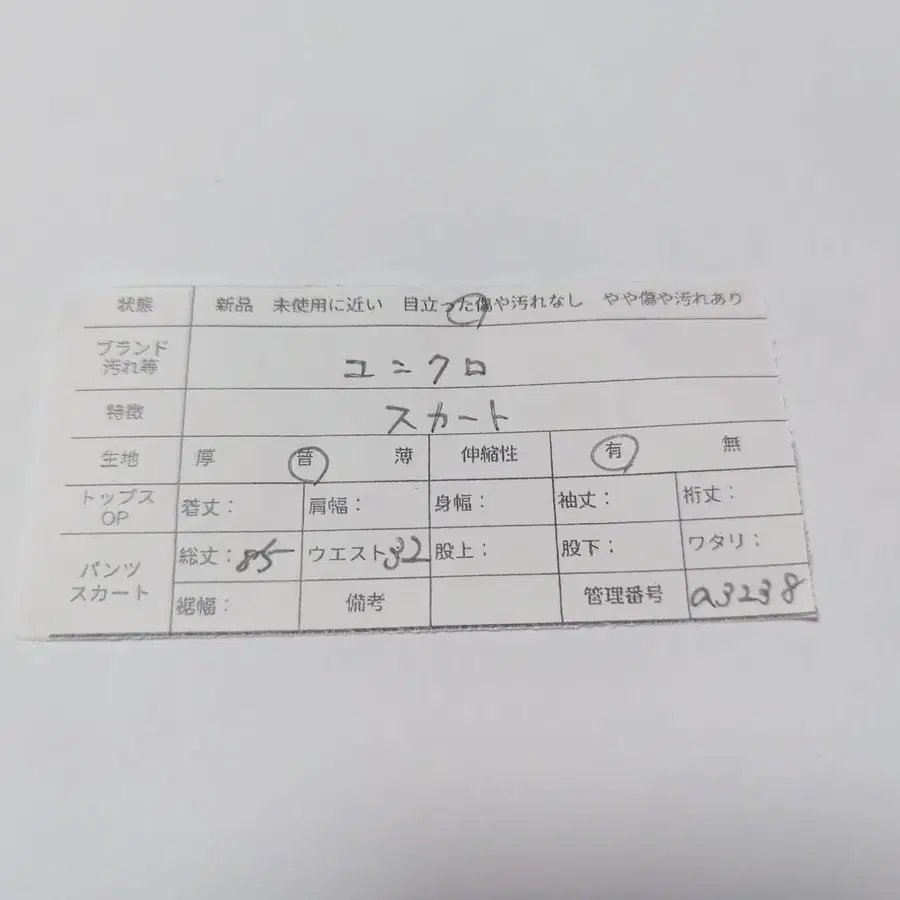 状態 新品 未使用に近い 目立った傷や汚れなし やや傷や汚れあり
ブランド
汚れ等
ユニクロ
特徴 スカート
生地 厚 普 薄 伸縮性 有 無
トップス
OP
着丈： 肩幅： 身幅： 袖丈： 裄丈：
パンツ
スカート
総丈：85 ウエスト32 股上： 股下： ワタリ：
裾幅： 備考 管理番号 a3238